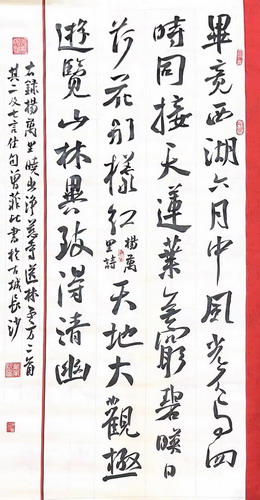 畢竟西湖六月中風光不與四
時同接天蓮葉無窮碧暎日
荷花別樣紅楊萬里詩天地大觀極
遊覽山林異致得清幽
右録楊萬里曉出淨慈寺送林子方二首
其二及七言佳句曾菲比書於古城長沙